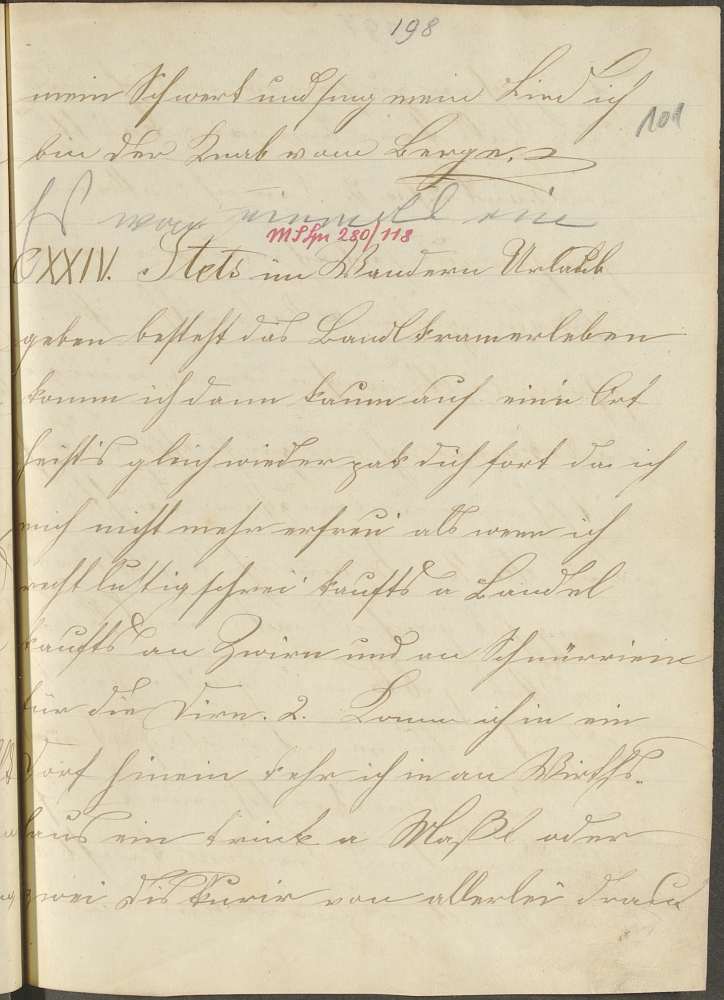 198
mein Schwert und sing mein Lied ich
101
bin der Knab vom Berge.
Es war einmahl ein
MSHu 280/118
CXXIV. Stets im Wandern Urlaub
geben besteht das Bandlkramerleben
komm ich dann kaum auf einin Ort
heist's gleich wieder pak dich fort da ich
mich nicht mehr erfreu als wenn ich
recht lustig schrei kaufts a Bandel
kaufts an Zwirn und an Schnürriem
für die Dirn. 2. Komm ich in ein
Dorf hinein kehr ich in an Wirths-
haus ein trink a Maßl oder
zwei diskurir von allerlei drauf